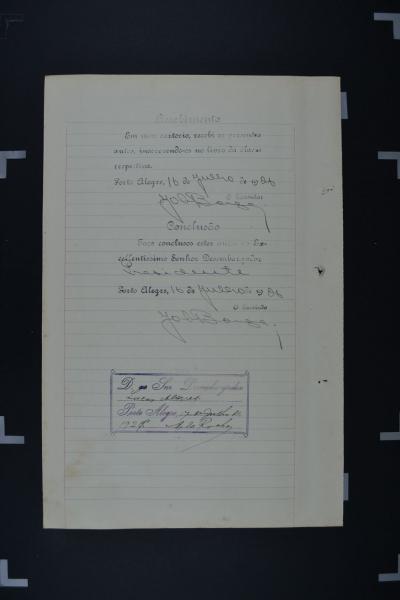 Recebimento
Em meu cartorio, recebi os presentes
autos, inscrevendo-os no livro da classe
respectiva.
Porto Alegre, 16 de Julho de 1926
O Escrivão
Conclusão
Faço conclusos estes autos ao Ex-
cellentissimo Senhor Desembargador
Presidente
Porto Alegre, 16 de Julho de 1926
O Escrivão
D. ao Snr. Desembargador
Porto Alegre, de Julho de
192